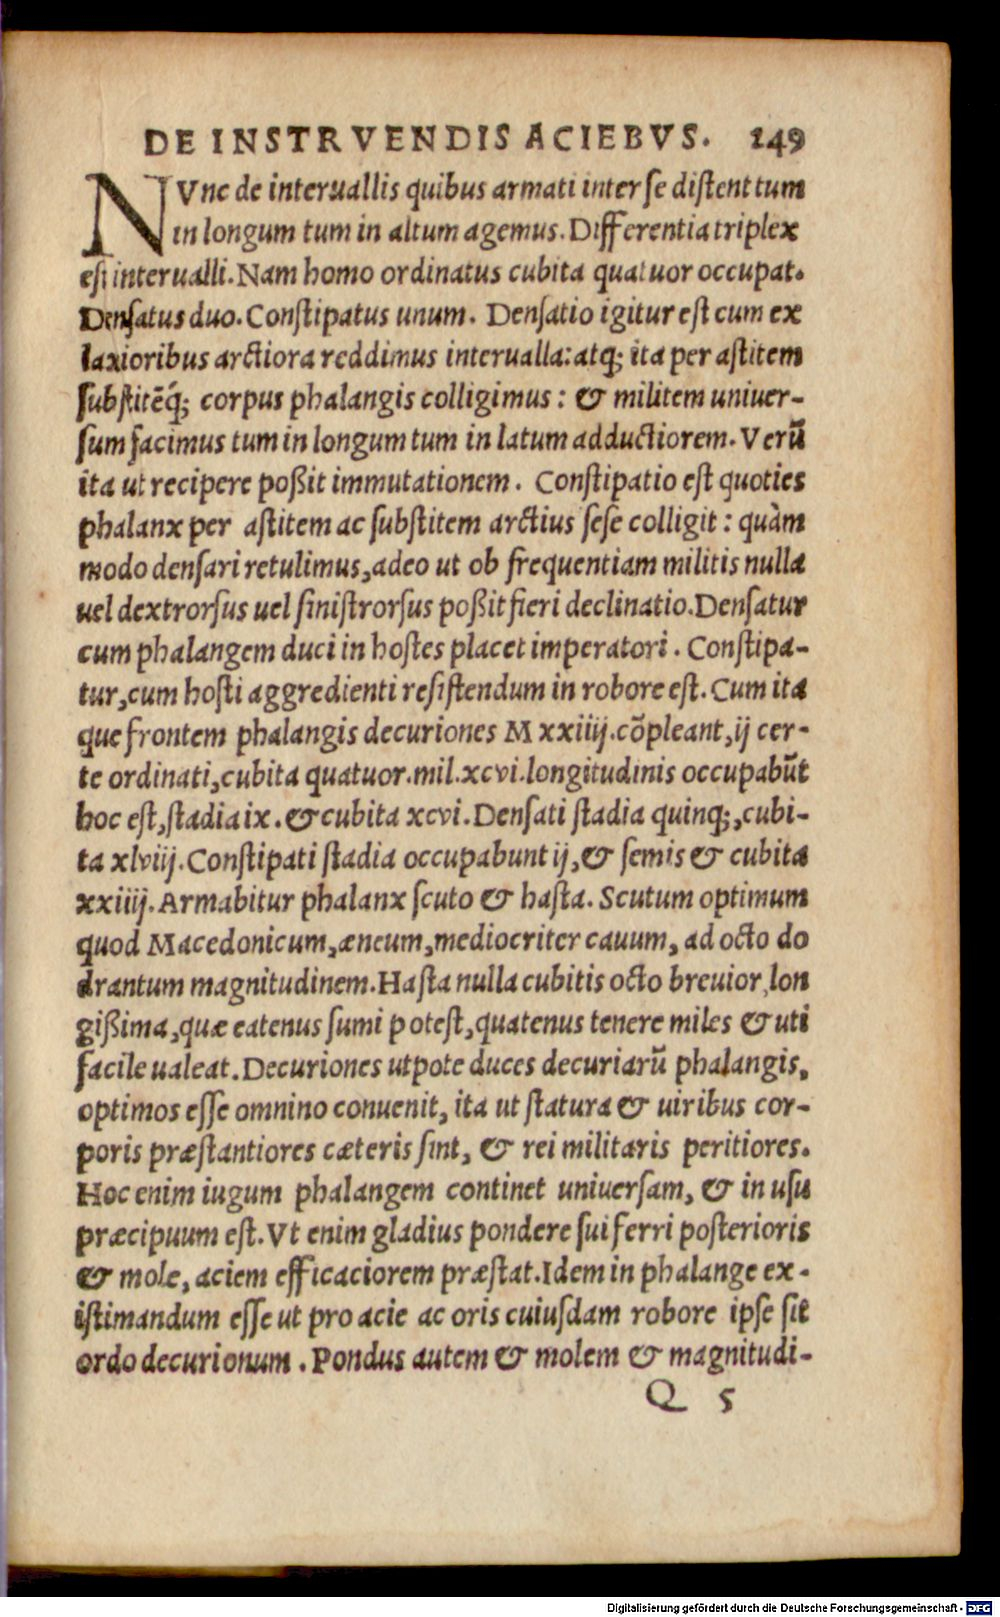 DE INSTRVENDIS ACIEBVS. 249
NVnc de interuallis quibus armati inter se distent tum
in longum tum in altum agemus. Differentia triplex
est interualli. Nam homo ordinatus cubita quatuor occupat.
Densatus duo. Constipatus unum. Densatio igitur est cum ex
laxioribus arctiora reddimus interualla: atq; ita per astitem
substitēq́; corpus phalangis colligimus: & militem uniuer-
sum facimus tum in longum tum in latum adductiorem. Verū
ita ut recipere poßit immutationem. Constipatio est quoties
phalanx per astitem ac substitem arctius sese colligit: quàm
modo densari retulimus, adeo ut ob frequentiam militis nulla
uel dextrorsus uel sinistrorsus poßit fieri declinatio. Densatur
cum phalangem duci in hostes placet imperatori. Constipa-
tur, cum hosti aggredienti resistendum in robore est. Cum ita
que frontem phalangis decuriones M xxiiij. cōpleant, ij cer-
te ordinati, cubita quatuor. mil. xcvi. longitudinis occupabūt
hoc est, stadia ix. & cubita xcvi. Densati stadia quinq;, cubi-
ta xlviij. Constipati stadia occupabunt ij, & semis & cubita
xxiiij. Armabitur phalanx scuto & hasta. Scutum optimum
quod Macedonicum, æneum, mediocriter cauum, ad octo do
drantum magnitudinem. Hasta nulla cubitis octo breuior, lon
gißima, quæ eatenus sumi potest, quatenus tenere miles & uti
facile ualeat. Decuriones utpote duces decuriarū phalangis,
optimos esse omnino conuenit, ita ut statura & uiribus cor-
poris præstantiores cæteris sint, & rei militaris peritiores.
Hoc enim iugum phalangem continet uniuersam, & in usu
præcipuum est. Vt enim gladius pondere sui ferri posterioris
& mole, aciem efficaciorem præstat. Idem in phalange ex-
istimandum esse ut pro acie ac oris cuiusdam robore ipse sit
ordo decurionum. Pondus autem & molem & magnitudi-
Q 5
Digitalisierung gefördert durch die Deutsche Forschungsgemeinschaft - DFG